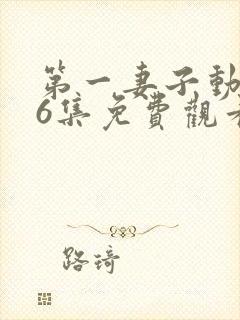 第一妻子動
6集免費觀看
路琦